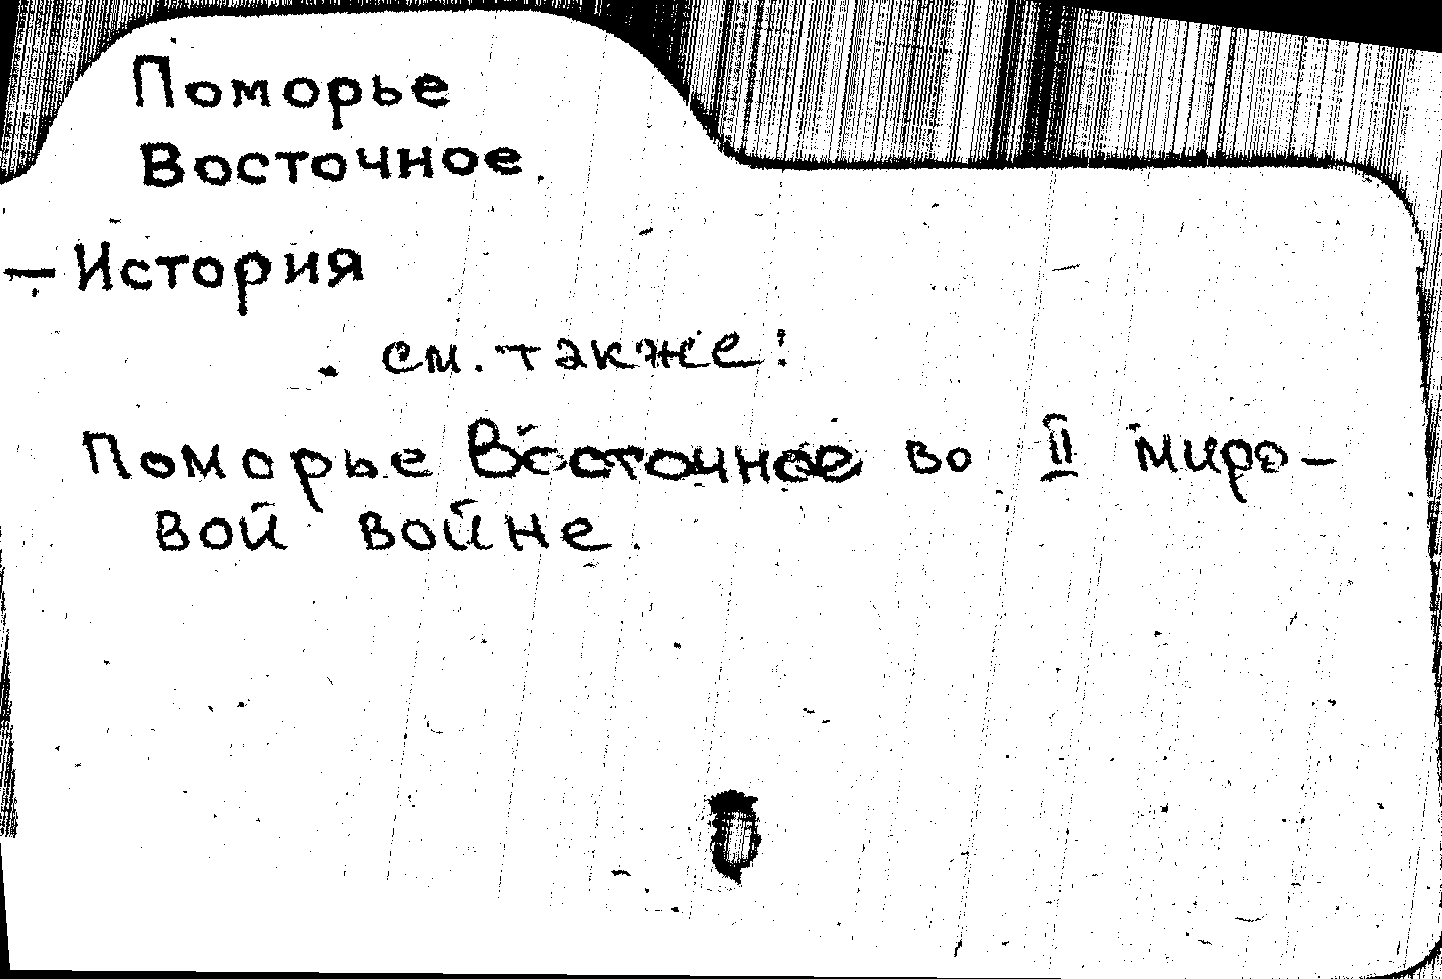 Поморье
Восточное.
— История
см. также:
Поморье Восточное во II миро-
вой войне.